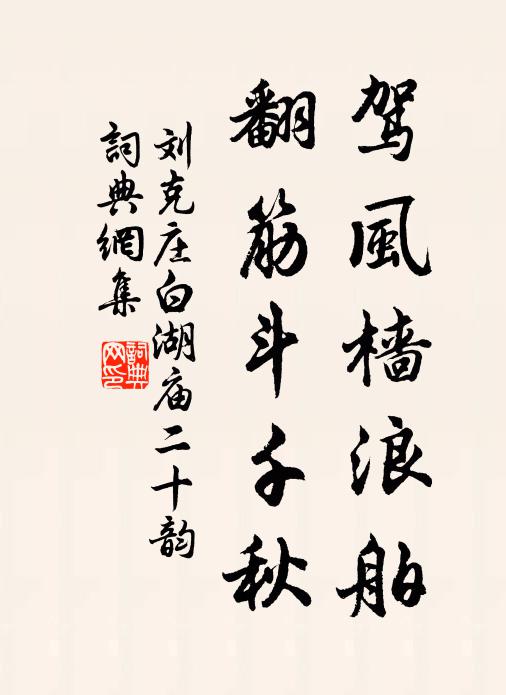 驾風檣浪舶
翻筋斗千秋
刘克庄白湖庙二十韵
詞典網集
詞典
网印